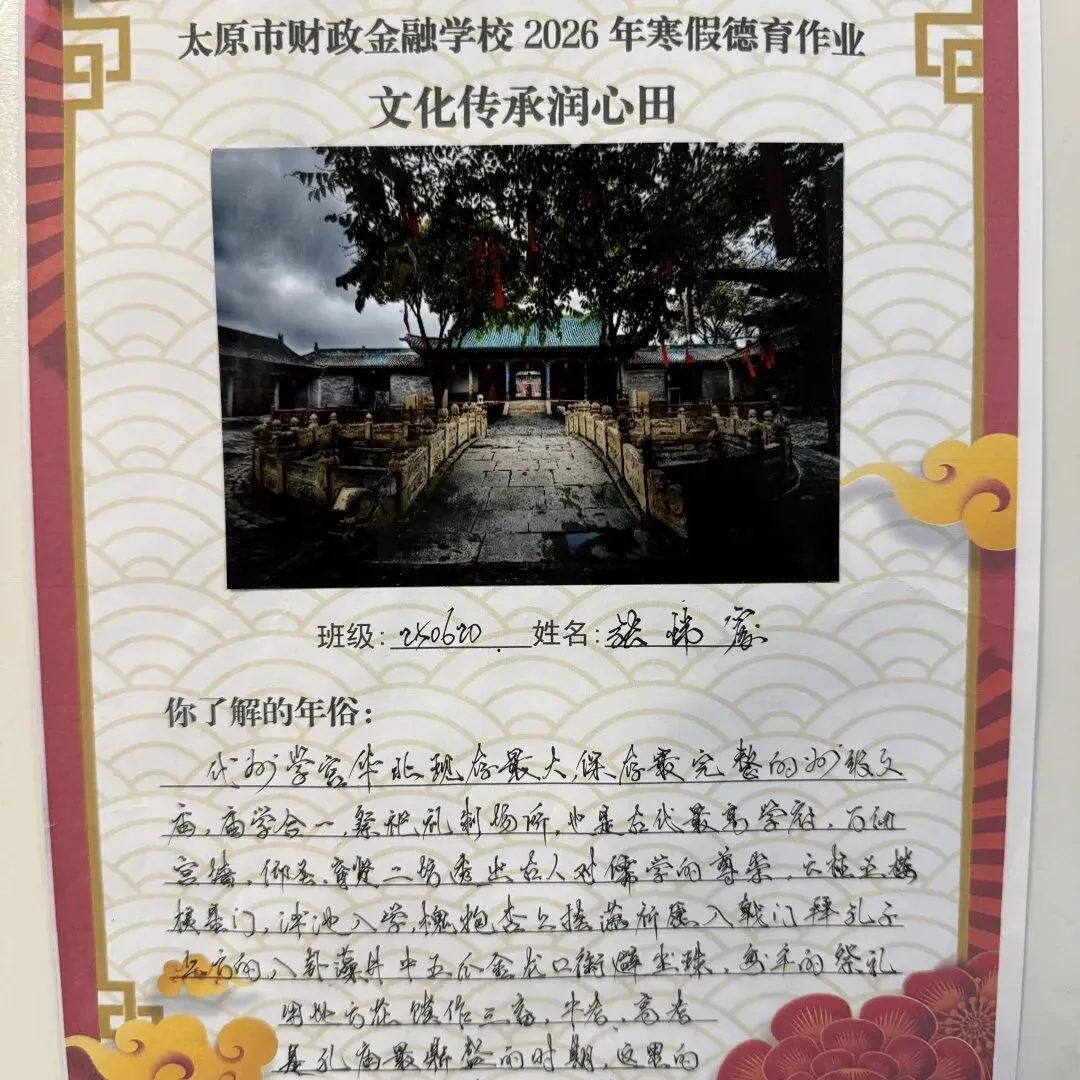 太原市财政金融学校 2026 年寒假德育作业
文化传承润心田
班级: 250620 姓名:
你了解的年俗:
代州学宫华北现存最大,保存最完整的州级文
庙,庙学合一,祭祀礼制场所,也是古代最高学府,万仞
宫墙,仰圣,育贤二坊透出古人对儒学的尊崇,
棂星门,泮池入学,槐抱杏上挂满祈愿入戟门拜孔子
上方的八卦藻井中五个金龙口衔辟尘珠,的祭礼
中考,高考
是孔庙最鼎盛的时期,这里的